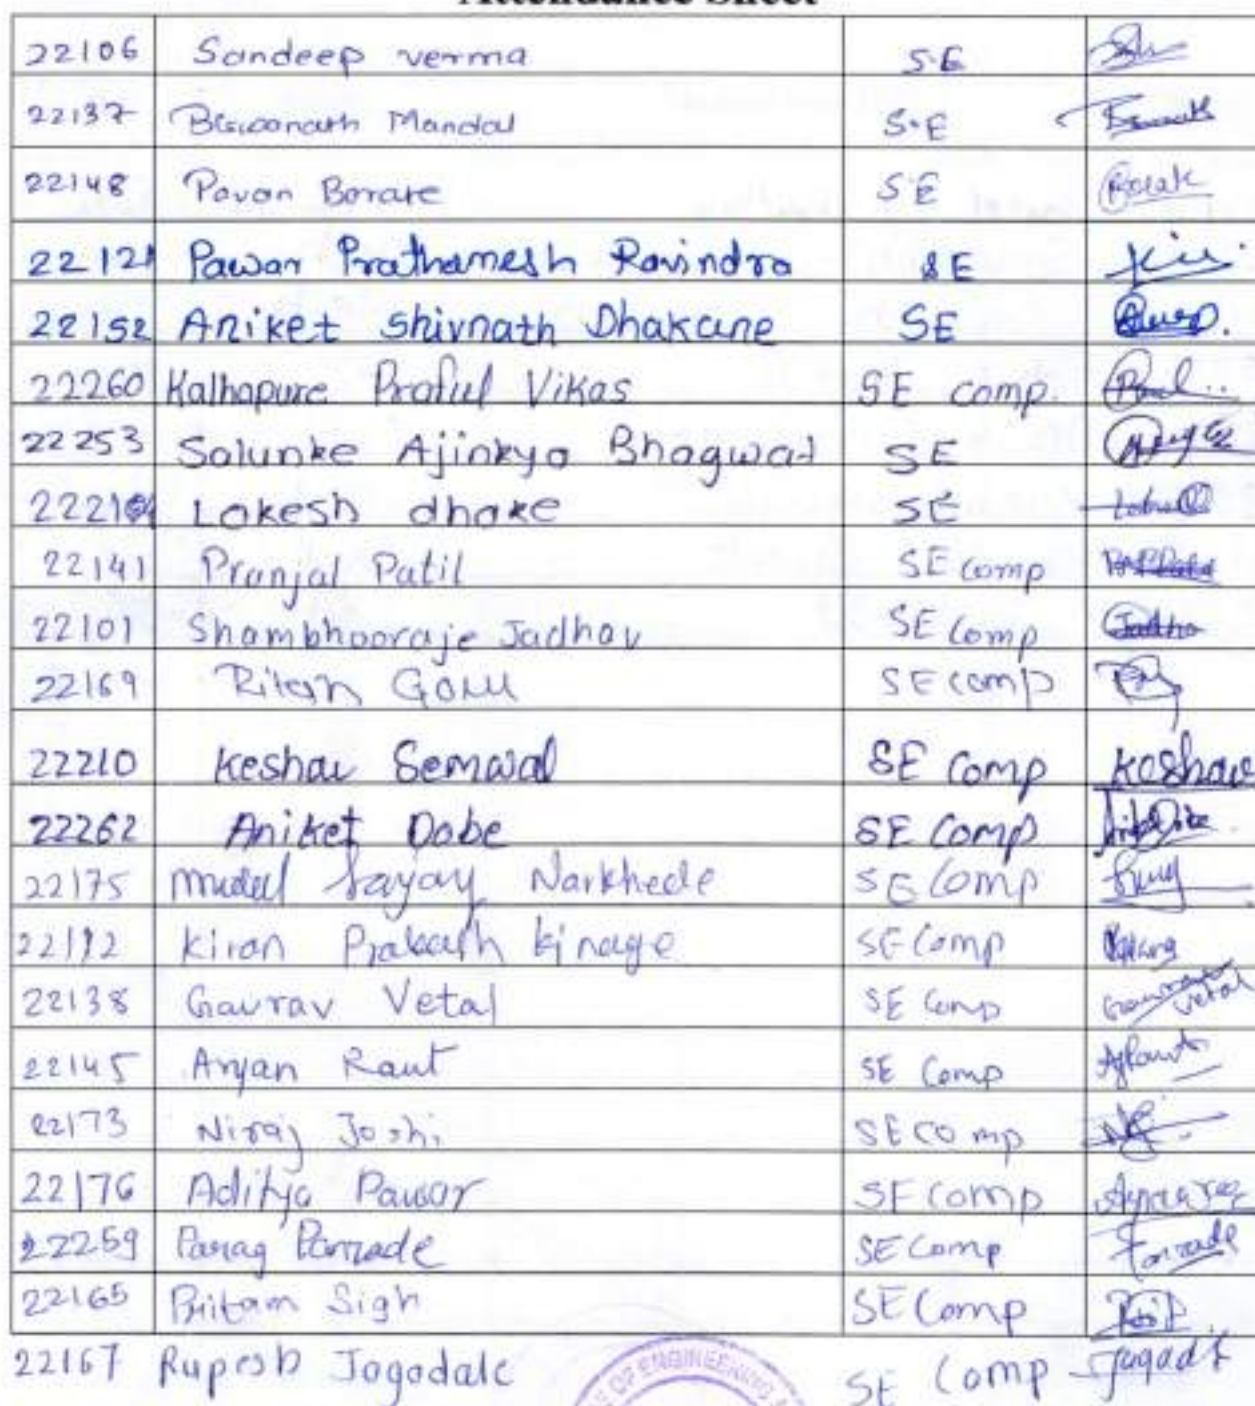 Attendance Sheet
22106 Sandeep verma S.E
22137 Biswanath Mandal S.E
22148 Pavan Borate S.E Borate
22121 Pawar Prathamesh Ravindra SE
22152 Aniket Shivnath Dhakane SE
22260 Kalhapure Praful Vikas SE comp.
22253 Salunke Ajinkya Bhagwat SE
Lokesh dhake SE
22141 Pranjal Patil SE Comp
22101 Shambhooraje Jadhav SE Comp Jadhav
22169 Ritesh SE comp
22210 Keshav Semwal SE Comp Keshav
22262 Aniket Dobe SE Comp
22175 Narkhede SE Comp
22112 Kiran Prakash Kinage SE Comp
22138 Gaurav Vetal SE Comp Gaurav Vetal
22145 Aryan Raut SE Comp
22173 Niraj Joshi SE comp
22176 Aditya Pawar SE Comp
22259 Parag Panzade SE Comp Panzade
22165 Pritam Sigh SE Comp
22167 Rupesh Jagadale SE Comp
OF ENGINEERING